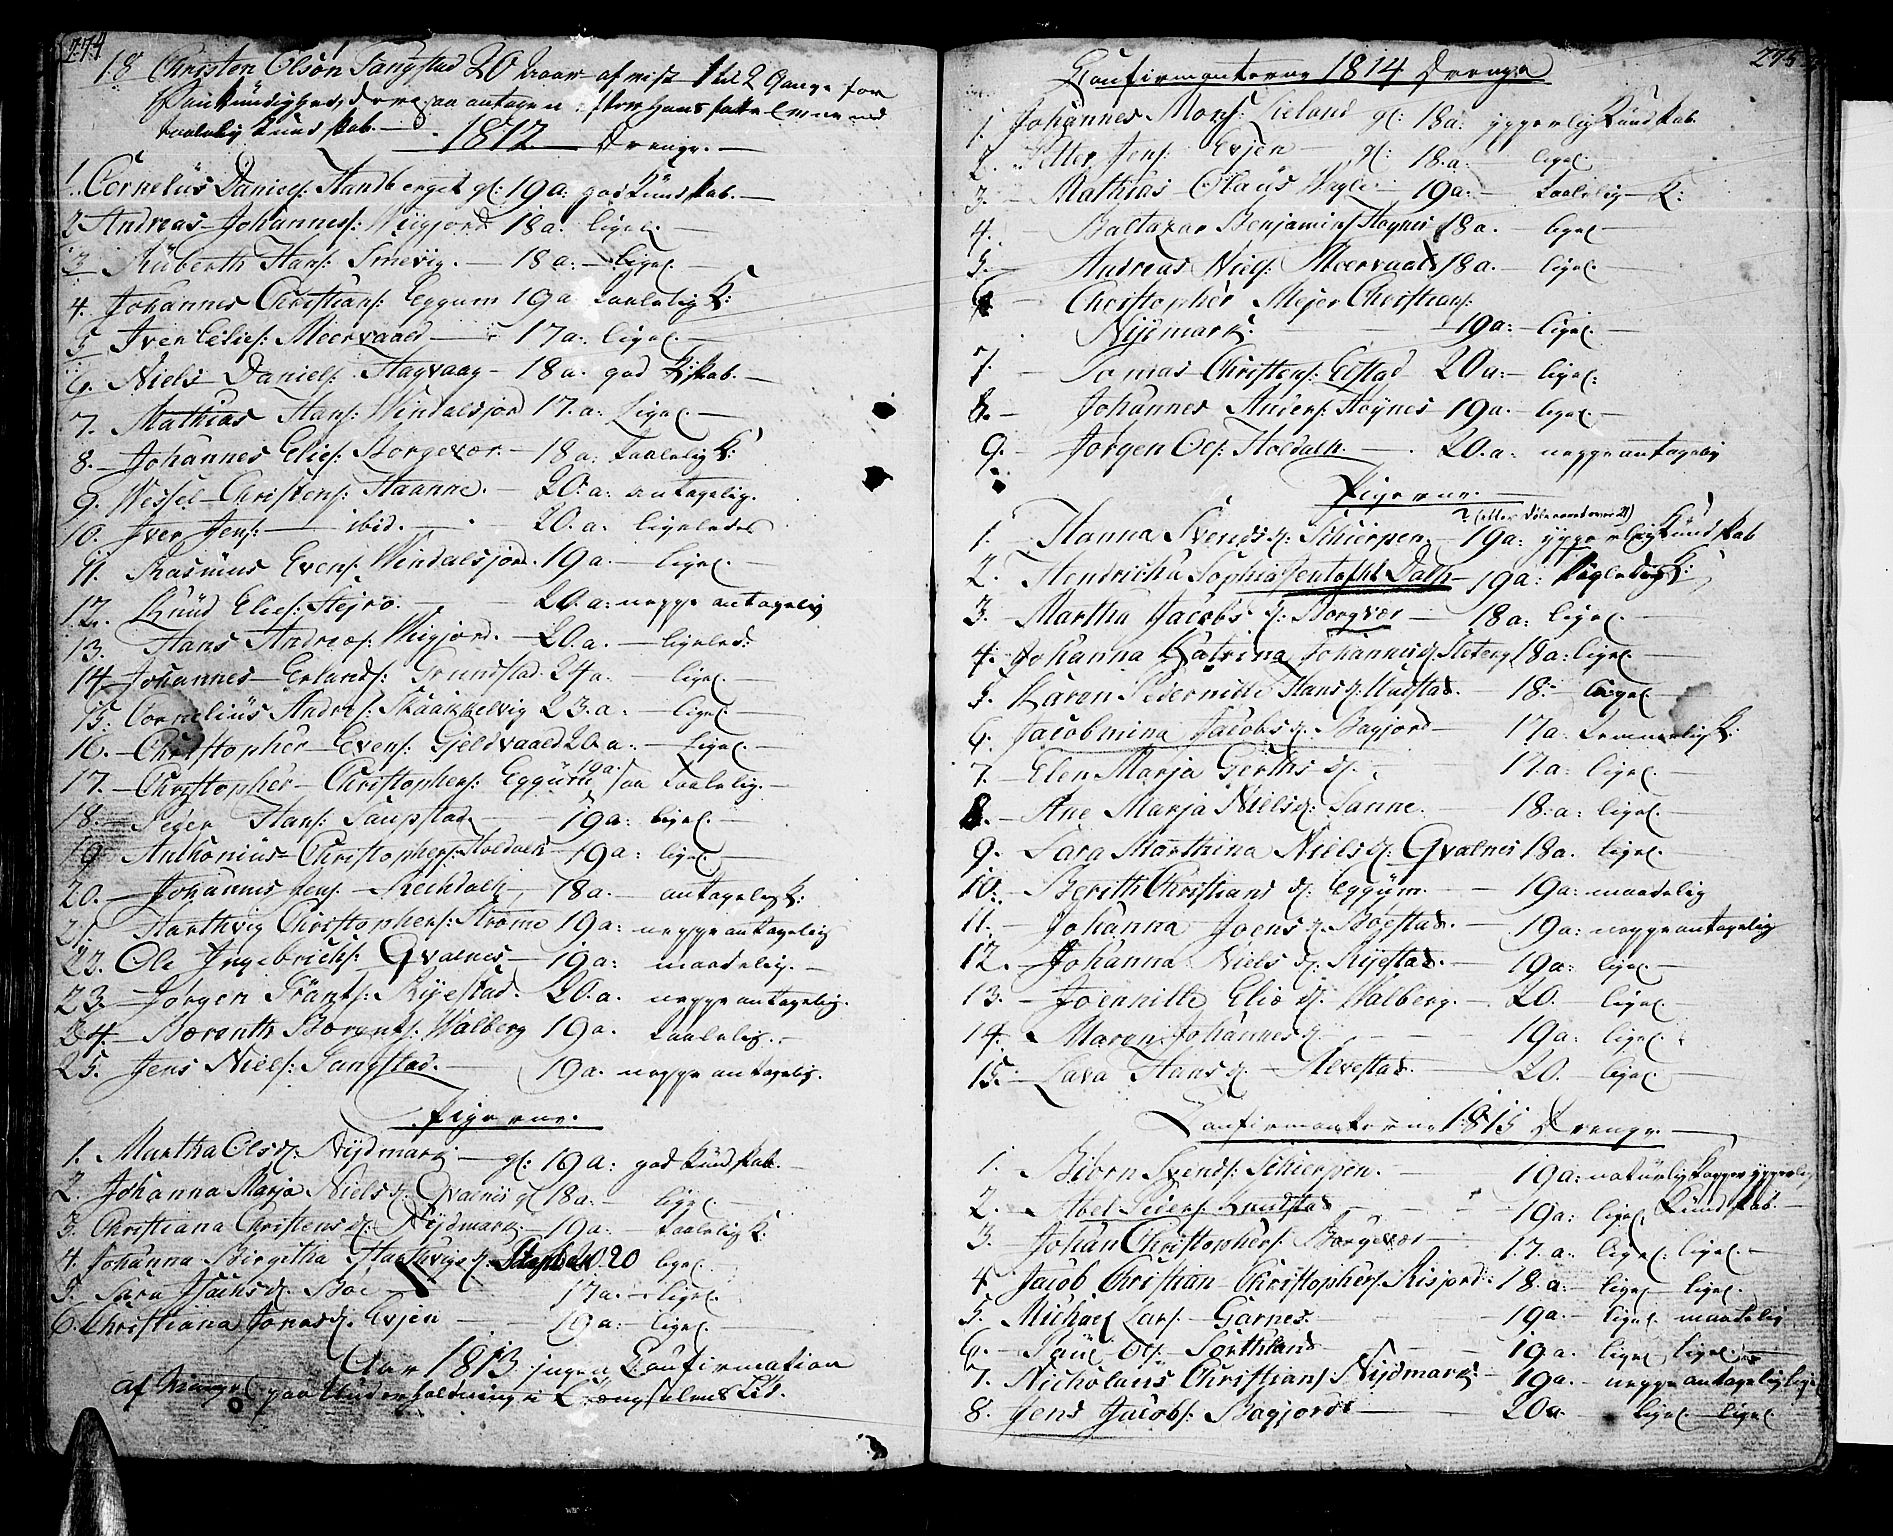 274
18 Christen Olson Sangstad 20 aar afvist 1 til 2 Gange for
Vankundighed,
taalelig Kundskab. —
1812 Drenge. —
1. Cornelius Daniels: Handberget gl: 19 a: god Kundskab. —
2 Andreas Johannes: Wiigjord 18 a. ligel. —
3 Ruberth Hans: Smevig. — 18 a: — ligel. —
4. Johannes Christians: Eggum 19 a: taalelig K:
5 Iver Elies: Meervaald — 17 a: ligel. —
6. Niels Daniels: Hagvaag — 18 a. god Kskab. —
7. Mathias Hans: Windalsjord 17. a: Ligel. —
8. — Johannes Elies: Borgevær. — 18 a: taalelig K:
9. Wessel Christens: Haanne. — 20. a: antagelig.
10. Iver Jens: — ibid. — 20. a: ligeledes
11. Rasmus Evens: Windalsjord. 19 a. — ligel. —
12. Knud Elies: Steiro. — 20. a: neppe antagelig
13. Hans Andreas: Wigjord. — 20. a. — ligeled:
14 — Johannes Erlands: Grundstad 24 a. — ligel. —
15. Cornelius Andres: Skaakkelvig 23. a. — ligel. —
16. — Christopher Evens: Gjeldvaald 20 a. — Ligel. —
17. — Christopher Christophers: Eggum 19 a. saa taalelig. —
18. — Peder Hans: Saupstad — 19 a: ligel. —
19 Anthonius Christophers: Holdalh — 19 a: — ligel. —
20. — Johannes Jens: Rechdalh, — 18 a. — antagelig K:
21. Harthvig Christophers: Strømø 19 a: neppe antagelig
22. Ole Ingebrichs: Qvalnes — 19 a: — maadelig. —
23. — Jorgen Frants: Rijestad. 20. a. neppe antagelig.
24 — Borenth Borents: Walberg 19 a. taalelig. —
25. Jens Niels: Sangstad. — 19 a. neppe antagelig.
Pigerne.
1. Martha Olsd: Nijdmark — gl: 19 a: god Kundskab. —
2. Johanna Marja Nielsd: Qvalnes gl 18 a. — ligel. —
3. Christiana Christensd: Nijdmark. — 19 a: taalelig K:
4. Johanna Birgitha Harthvigsd: 20 ligel.
5. Sara Isacsd: Boe — 17 a. — ligel. —
6. Christiana Jonasd: Evjen — 19 a: — ligel. —
Aar 1813 ingen Confirmation
af Mangel paa Underholdning i Trængselens Tid.
275
Confirmanterne 1814 Drenge
1. Johannes Mons: Lieland gl: 18 a: ypperlig Kundskab
2. Petter Jens: Evjen — gl: 18. a. — ligel. —
3. — Mathias Olaus — 19 a. — taalelig — K:
4. — Baltazar Benjamins: Stognes 18 a. — ligel —
5. — Andreas Niels: Meervaald 18 a. — ligel. —
6 — Christopher Mejer Christians:
Nijdmark. — 19 a: — ligel. —
7. — Tomas Christens: Eltstad 20 a: — ligel:
8. — Johannes Anders: Stognes 19 a. — ligel. —
9. — Jorgen Ols: Holdalh. — 20. a: neppe antagelig
Pigerne. —
1. — Hanna Svendsd: Schierpen. — 19 a: ypperlig Kundskab
2. — Hendricha Sophia Jentofht Dalh — 19 a: K:
3. — Martha Jacobsd: Borgvær — 18 a: ligel. —
4. — Johanna Katrina Johannesd: 18 a: ligel. —
5. — Karen Pedernille Hansd: Uudstad. — 18. — ligel —
6. Jacobmina Jacobsd: Bagjord — 17 a: temmelig K:
7. — Elen Marja Gerthsd: — 17. a: ligel. —
8. — Ane Marja Nielsd: Sanne. — 18. a: ligel. —
9. — Sara Marthina Nielsd: Qvalnes 18 a. ligel. —
10. — Berith Christiansd: Eggum. — 19 a: maadelig
11. — Johanna Joensd: Boestad. — 19 a: neppe antagelig
12. — Johanna Nielsd: Rijestad. — 19 a. ligel. —
13. — Joennille Elisd: Walberg. — 20. — ligel. —
14. — Maren Johannesd: — 19 a: ligel. —
15. — Lava Hansd: — Alvestad — 20. ligel. —
Confirmanterne 1815 Drenge —
1. — Biorn Svends: Schierpen. — 19 a: naturlig ypperlig
2. — Abel Peders: Knutstad — 19 a: ligel. Kundskab. —
3. Johan Christophers: Borgevær — 17. a: ligel. ligel. —
4 Jacob Christian Christophers: Risjord: 18. a: — ligel. ligel. —
5. Michael Lars: Garnes. — 19 a. — ligel. maadelig
6. — Paul Ols: Sorthland — 19 a. ligel. ligel. —
7. — Nicholaus Christians: Nijdmark: — 19 a. — neppe antagelig lige
8. Jens Jacobs: Bagjord — 20 a. — ligel — ligel.